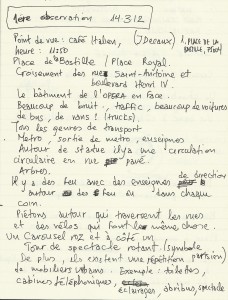 1ère observation 14.3.12
Point de vue: café Italien, (J Decaux) 1, PLACE DE LA
heure: 11h50 BASTILLE, 75011
Place de Bastille / Place Royal.
Croisement des rues Saint-Antoine et
boulevard Henri IV.
Le bâtiment de l'OPERA en face.
Beaucoup de bruit, traffic, beaucoup de voitures
de bus, de vans! (trucks).
Tous les genres de transport
Metro, sortie de metro, enseignes
Autour de statue ilya une circulation
circulaire en rue pavé.
Arbres.
Il y a des feu avec des enseignes de direction
autour des feu en dans chaque
coin.
Piétons autour qui traversent les rues
et des vélos qui font le même chose.
Un Carousel roz et à côté un
Tour de spectacle rotant (symbole
De plus, ils existent une répétition parisien)
de mobiliers urbans. Exemple: toilettes,
cabines téléphoniques,
éclairages, abribus, spectacle